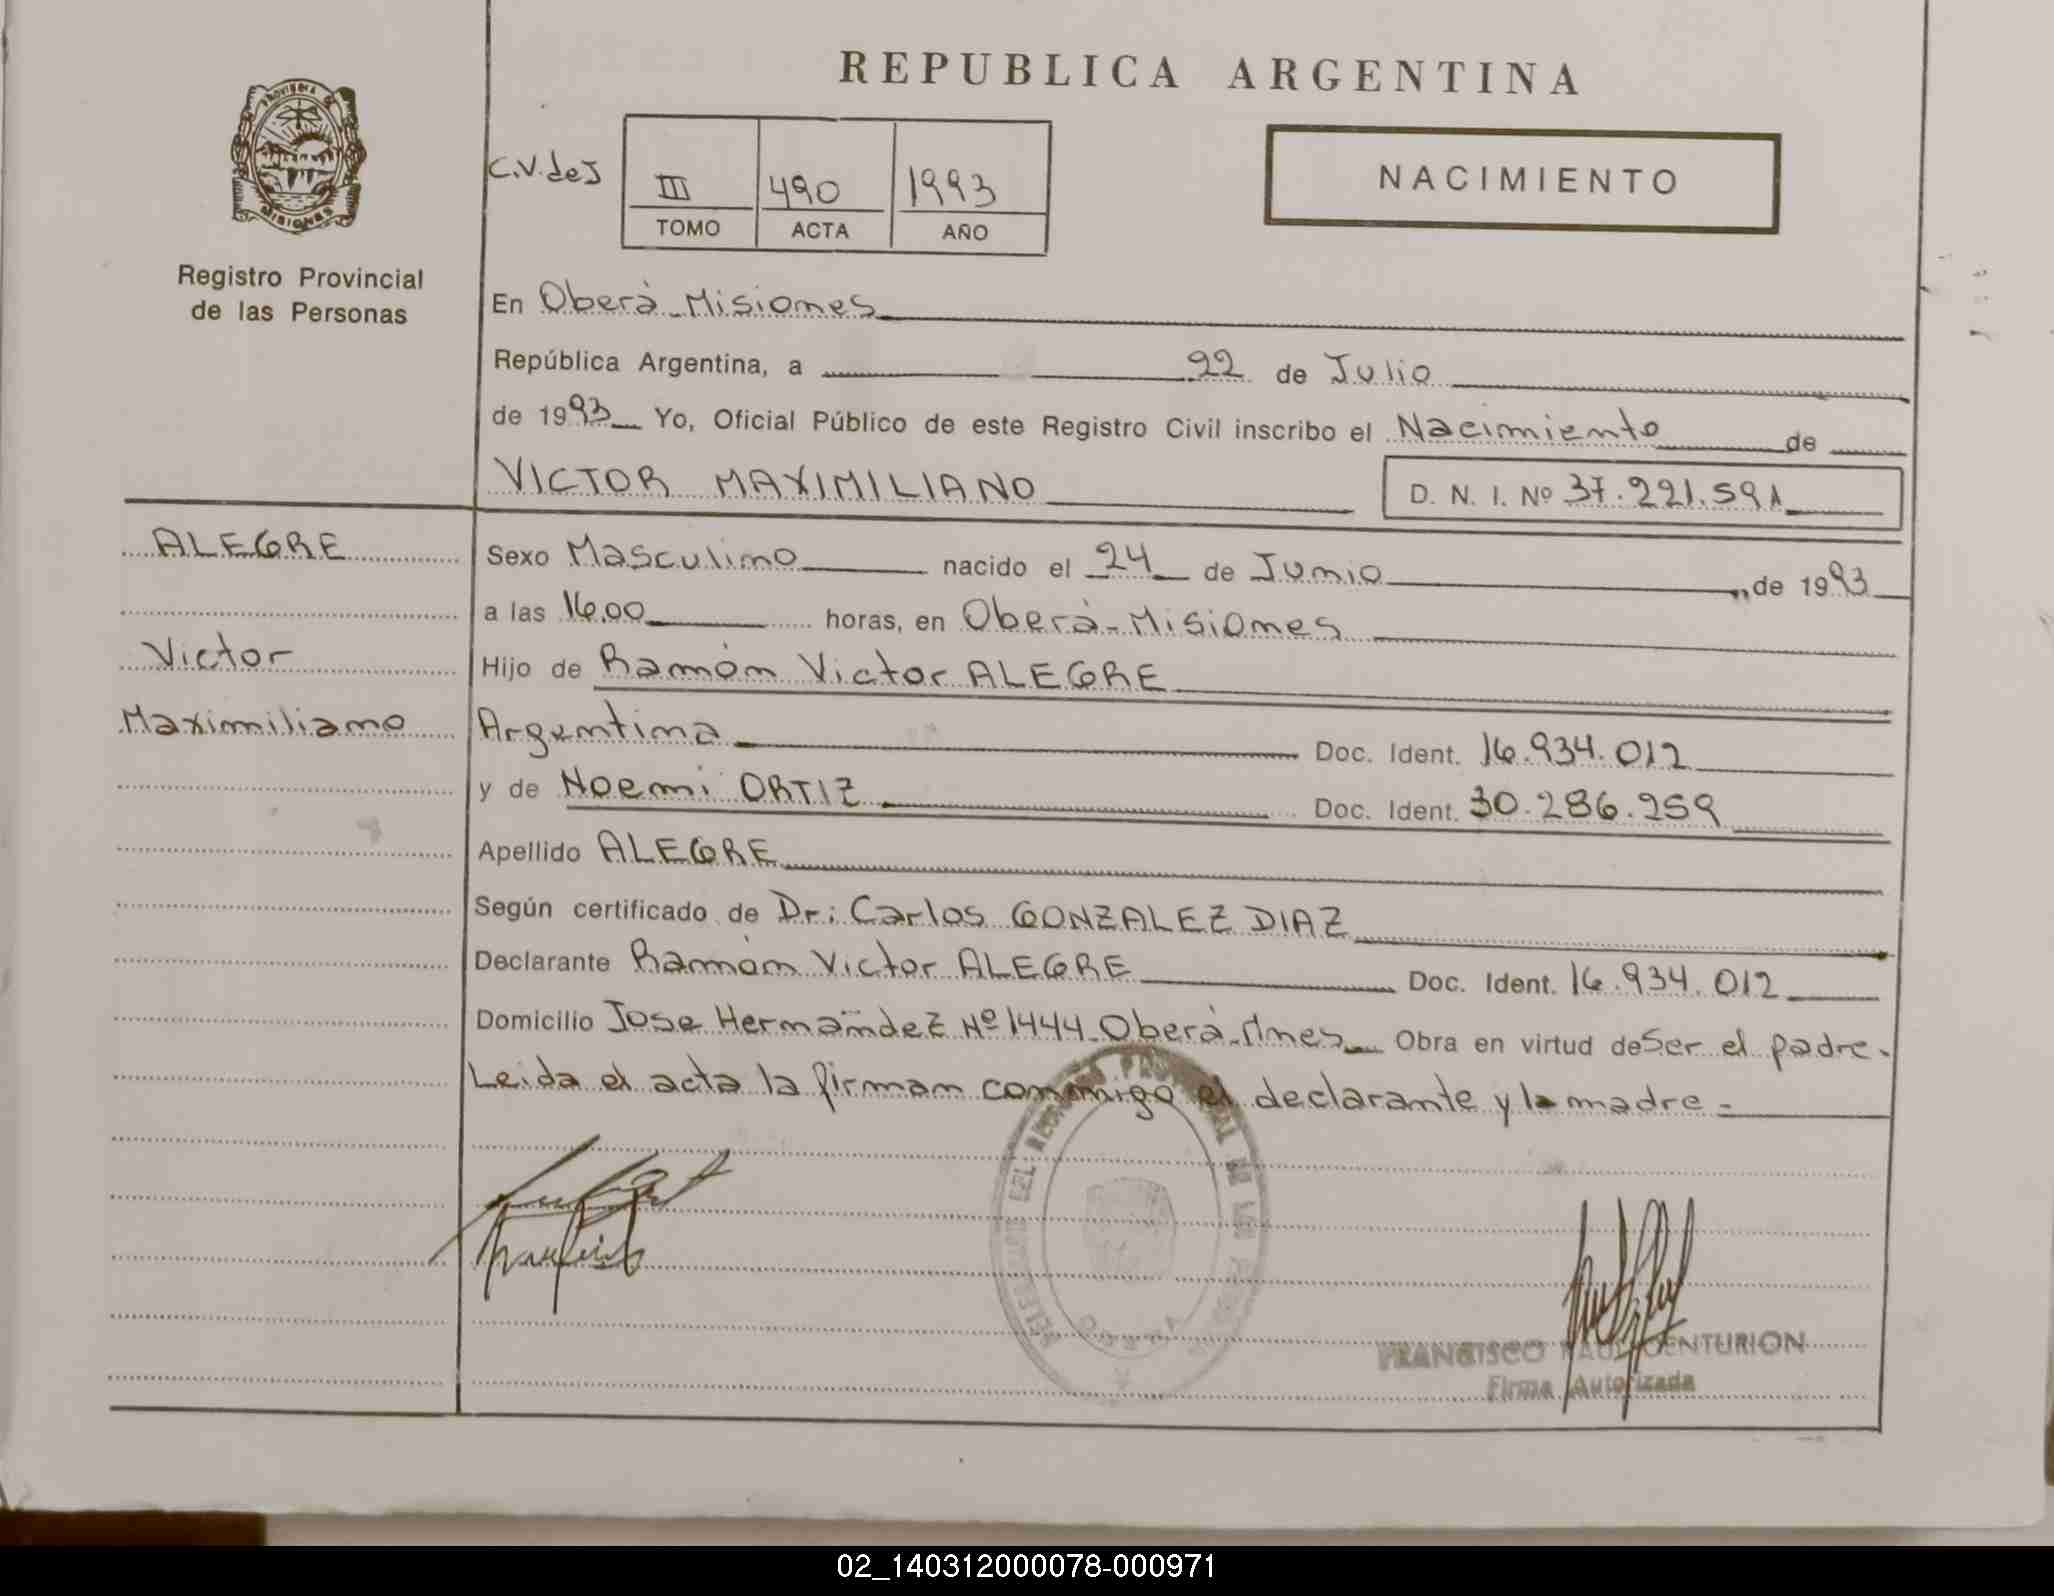 REPUBLICA ARGENTINA
PROVINCIA DE
MISIONES
Registro Provincial
de las Personas
C.V.deJ
III 490 1993
TOMO ACTA AÑO
NACIMIENTO
En Oberá-Misiones
República Argentina, a 22 de Julio
de 1993 Yo, Oficial Público de este Registro Civil inscribo el Nacimiento de
VICTOR MAXIMILIANO
D. N. I. Nº 37.221.591
ALEGRE
Victor
Maximiliano
Sexo Masculino nacido el 24 de Junio, de 1993
a las 16.00 horas, en Oberá-Misiones
Hijo de Ramón Victor ALEGRE
Argentina Doc. Ident. 16.934.012
y de Noemi ORTIZ Doc. Ident. 30.286.259
Apellido ALEGRE
Según certificado de Dr: Carlos GONZALEZ DIAZ
Declarante Ramón Victor ALEGRE Doc. Ident. 16.934.012
Domicilio Jose Hernandez Nº 1444-Oberá-Mnes Obra en virtud de Ser el padre.
Leida el acta la firman conmigo el declarante y la madre-
DEL REGISTRO PROVINCIAL DE LAS
OBERA
FRANCISCO RAUL CENTURION
Firma Autorizada
02_140312000078-000971